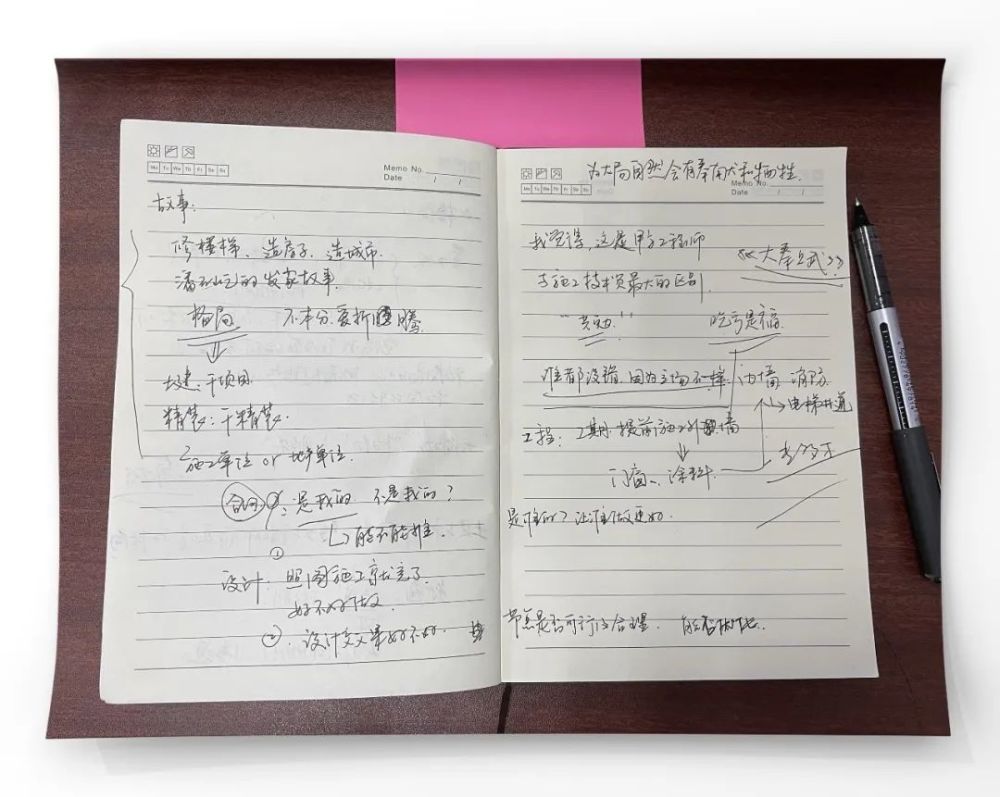 Mo Tu We Th Fr Sa Su
Memo No.
Date / /
故事:
修楼梯、造房子、造城市.
潘石屹的发家故事.
格局 不本分.爱折腾.
土建:干项目.
精装:干精装.
施工单位 or 地产单位.
合同 是我的 不是我的?
能不能推.
①
设计: 照图施工就完了.
好不好做.
② 设计交义
Mo Tu We Th Fr Sa Su
Memo No.
Date / /
为大局自然会有奉献和牺牲.
我觉得,这是甲方工程师
与施工技术员最大的区别.
"共赢!" 吃亏是福
谁都没错.因为立场不一样 内墙 消防.
电梯井道
工程: 工期:提前施工外墙
门窗、涂料
是谁的?让谁做更好.
节点是否可行合理.能否优化.